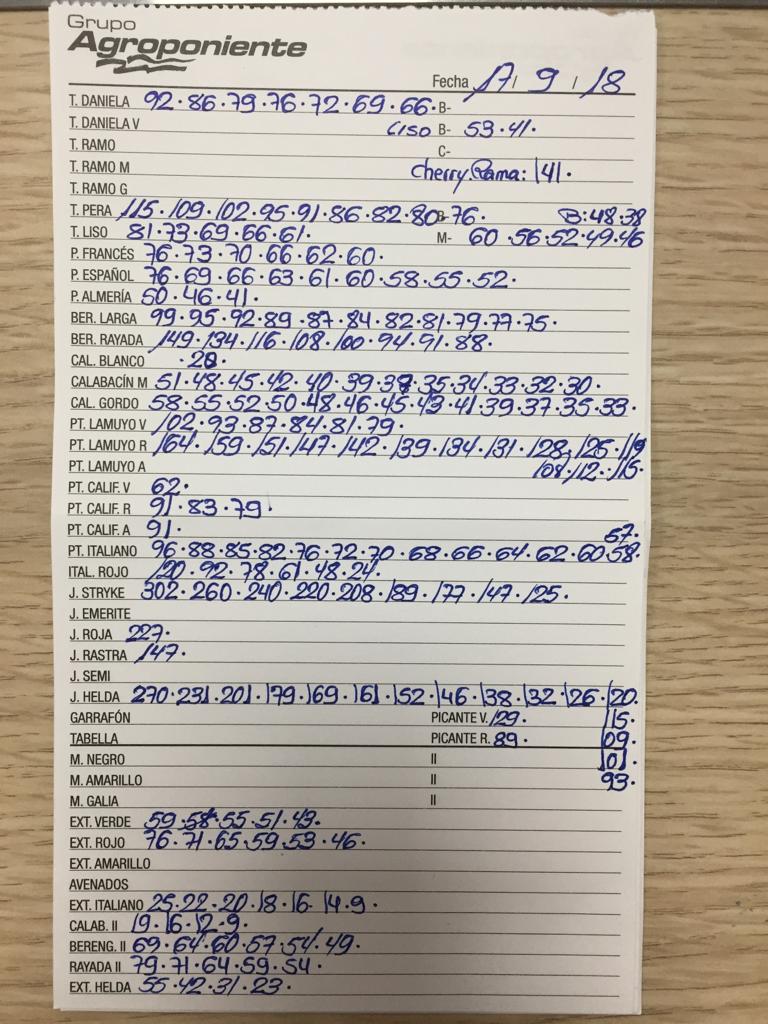 Grupo
Agroponiente
Fecha 17/ 9 / 18
T. DANIELA 92·86·79·76·72·69·66· B-
T. DANIELA V Liso B- 53·41·
T. RAMO C-
T. RAMO M Cherry Rama: 141·
T. RAMO G
T. PERA 115·109·102·95·91·86·82·80·76· B:48·38
T. LISO 81·73·69·66·61· M- 60·56·52·49·46
P. FRANCÉS 76·73·70·66·62·60·
P. ESPAÑOL 76·69·66·63·61·60·58·55·52·
P. ALMERÍA 50·46·41·
BER. LARGA 99·95·92·89·87·84·82·81·79·77·75·
BER. RAYADA 149·134·116·108·100·94·91·88·
CAL. BLANCO ·28·
CALABACÍN M 51·48·45·42·40·39·37·35·34·33·32·30·
CAL. GORDO 58·55·52·50·48·46·45·43·41·39·37·35·33·
PT. LAMUYO V 102·93·87·84·81·79·
PT. LAMUYO R 164·159·151·147·142·139·134·131·128·125·119
PT. LAMUYO A 108·112·115·
PT. CALIF. V 62·
PT. CALIF. R 91·83·79·
PT. CALIF. A 91· 57·
PT. ITALIANO 96·88·85·82·76·72·70·68·66·64·62·60·58·
ITAL. ROJO 120·92·78·61·48·24·
J. STRYKE 302·260·240·220·208·189·177·147·125·
J. EMERITE
J. ROJA 227·
J. RASTRA 147·
J. SEMI
J. HELDA 270·231·201·179·169·161·152·146·138·132·126·120·
GARRAFÓN PICANTE V. 129· 115·
TABELLA PICANTE R. 89· 109·
M. NEGRO II 101·
M. AMARILLO II 93·
M. GALIA II
EXT. VERDE 59·58·55·51·43·
EXT. ROJO 76·71·65·59·53·46·
EXT. AMARILLO
AVENADOS
EXT. ITALIANO 25·22·20·18·16·14·9·
CALAB. II 19·16·12·9·
BERENG. II 69·64·60·57·54·49·
RAYADA II 79·71·64·59·54·
EXT. HELDA 55·42·31·23·